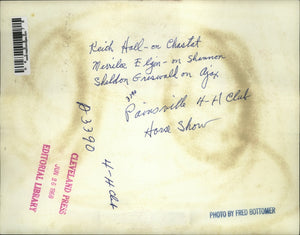 Keith Hall - on Chestat
Merrilee Elgen - on Shannon
Sheldon Griswald on Ajax
Painsville 4-H Club
Horse Show
P3390
4-H Club
CLEVELAND PRESS
EDITORIAL LIBRARY
PHOTO BY FRED BOTTOMER